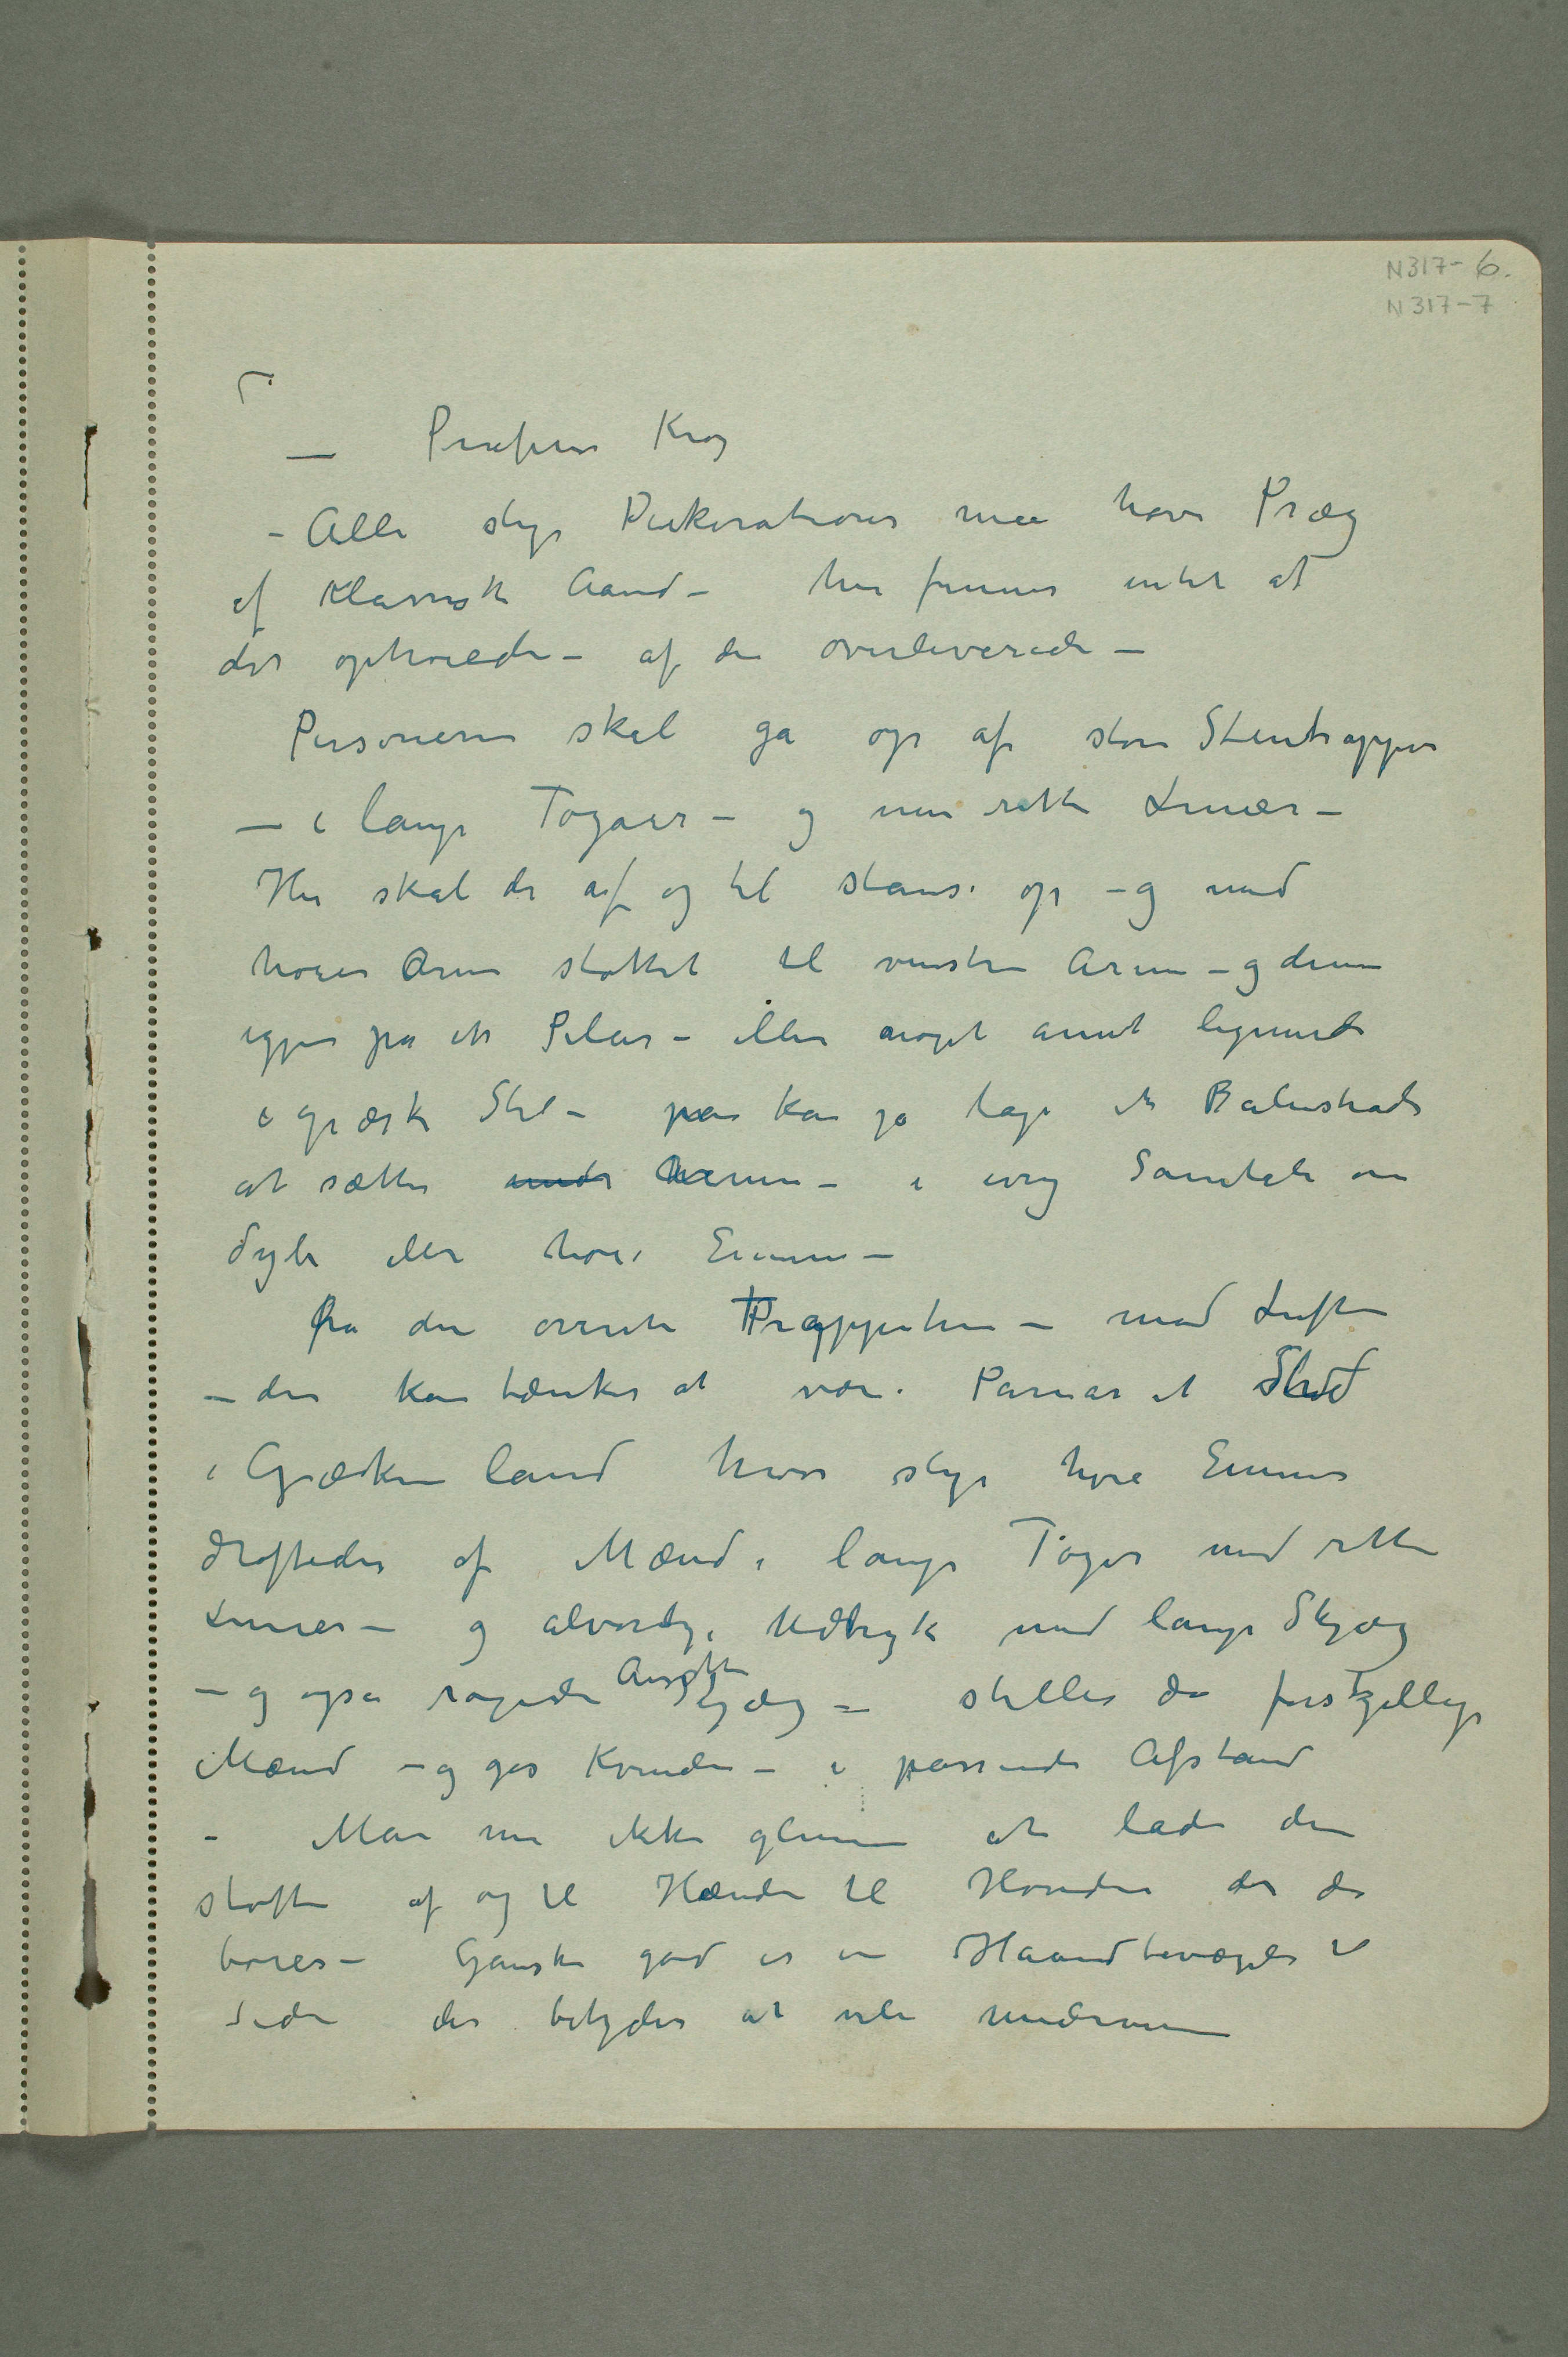 N317-6.
N317-7
— Professor Krog
– Alle slige Dekorationer maa have Præg
af klassisk Aand – her finnes intet at
det ophøiede – af de overleverede –
Personerne skal gå op af store Stentrapper
— i lange Togaer – og men rette Linier –
Her skal de af og til stanse op – og med
høire Arm støttet til venstre Arm – og denne
igjen på et Pilar – eller noget annet lignende
i græsk Stil – man kan jo tage et Balustrade
at sætte under Armen – i ivrig Samtale om
dybe eller høie Emner –
Fra den øverste Trappetrin – mod Luften
– der kan tænkes at være Parnas et Sted
i Grækenland hvor slige høie Emner
drøftedes af Mænd i lange Togaer med rette
Linier – og alvorlig Udtryk med lange Skjæg
– og også ragede Ansigter Skjæg – stilles der forskjellige
Mænd – og gjs Kvinder – i passende Afstand
– Man må ikke glemme at lade dem
støtte af og til Hænder til Hoveder der de
bøies – Ganske god er en Haandbevægelse til
Siden der betyder at ville undervise